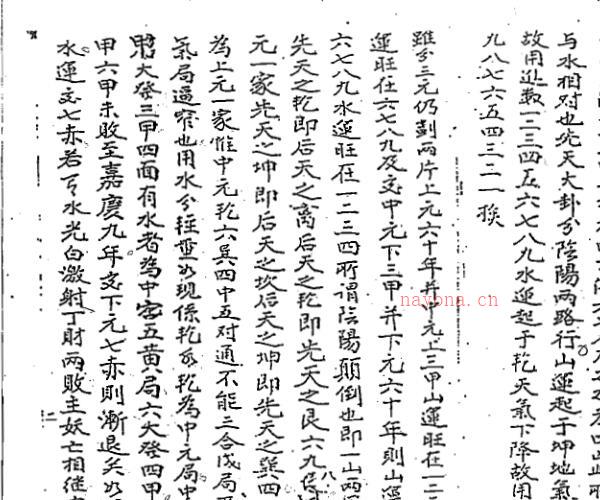 与水相对也先天大卦分陰陽两路行山運起于坤地氣
故用逆数一二三四五六七八九水運起于乾天氣下降故用
九八七六五四三二一
雖分三元仍劃两片上元六十年并中元上三甲山運旺在一二
運旺在六七八九及交中元下三甲并下元六十年則山運
六七八九水運旺在一二三四所谓陰陽顛倒也即一山两
先天之乾即后天之离后天之乾即先天之艮六九
元一家先天之坤即后天之坎后天之坤即先天之巽四
為上元一家惟中元乾六巽四中五对通不能三合成局
氣局逼窄也用水分轻重如現係乾亥乾為中元局中
大發三甲四面有水者為中宫五黄局六大發四甲
甲六甲未敗至嘉庆九年交下元七赤則漸退矣如
水運交七赤若有水光白激射丁財两敗主妖亡相继
二
nayona.cn